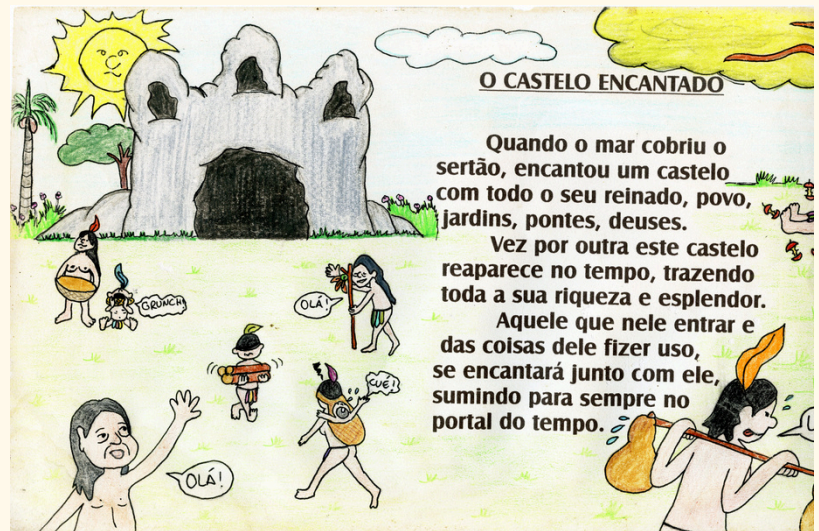 O CASTELO ENCANTADO
Quando o mar cobriu o
sertão, encantou um castelo
com todo o seu reinado, povo,
jardins, pontes, deuses.
Vez por outra este castelo
reaparece no tempo, trazendo
toda a sua riqueza e esplendor.
Aquele que nele entrar e
das coisas dele fizer uso,
se encantará junto com ele,
sumindo para sempre no
portal do tempo.
GRUNCH!
OLÁ!
CUÉ!
OLÁ!